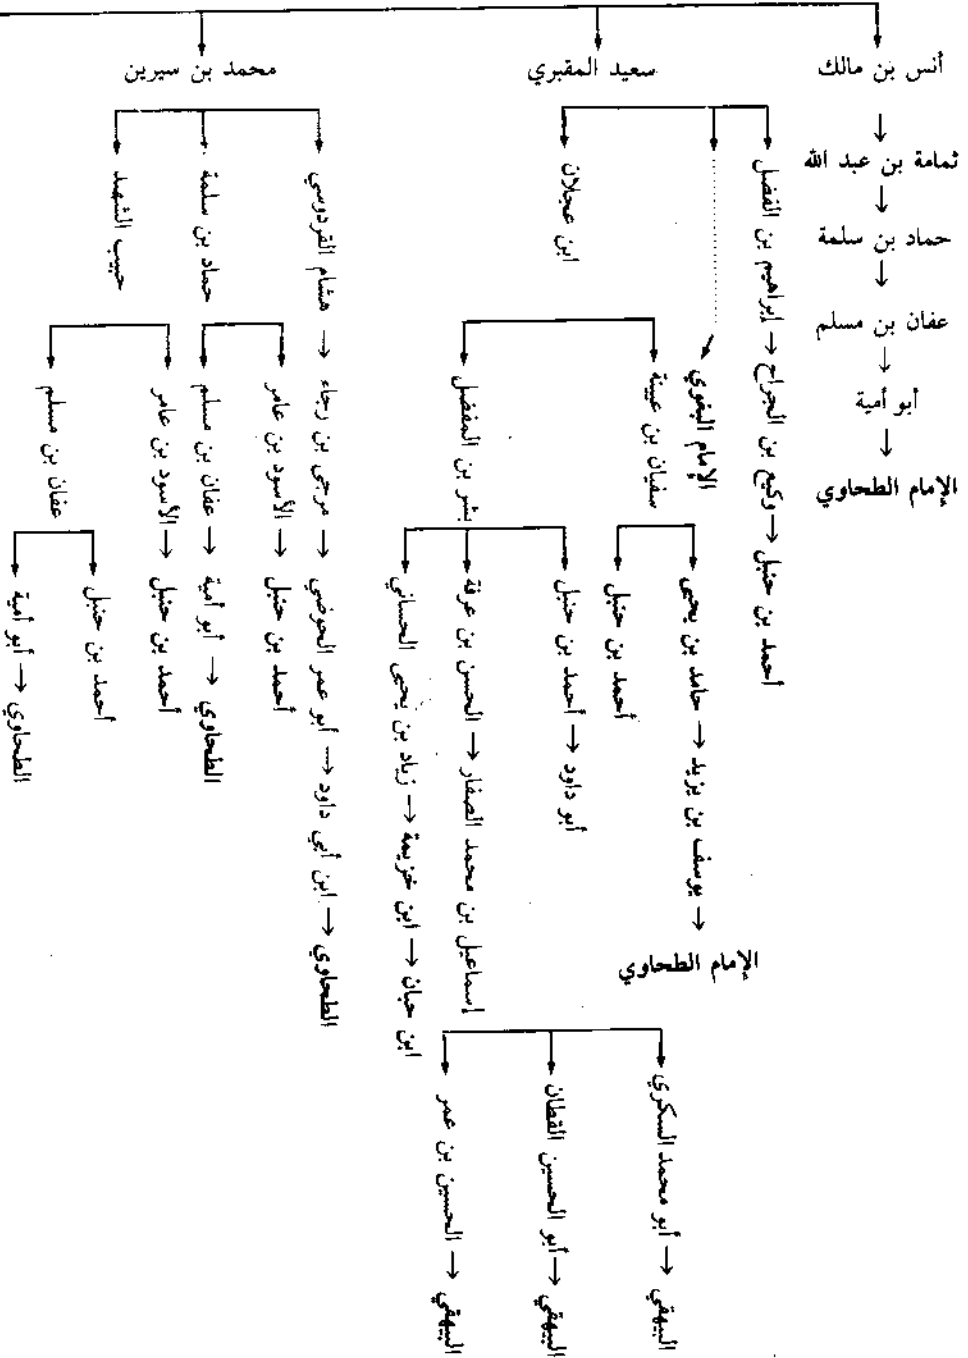 أنس بن مالك
ثمامة بن عبد الله
حماد بن سلمة
عفان بن مسلم
أبو أمية
الإمام الطحاوي
سعيد المقبري
إبراهيم بن الفضل → وكيع بن الجراح → أحمد بن حنبل
الإمام البغوي
ابن عجلان
سفيان بن عيينة
حامد بن يحيى → يوسف بن يزيد →
الإمام الطحاوي
أحمد بن حنبل
بشر بن المفضل
أحمد بن حنبل → أبو داود
الحسن بن عرفة → إسماعيل بن محمد الصفار
أبو محمد السكري → البيهقي
أبو الحسين القطان → البيهقي
الحسين بن عمر → البيهقي
زياد بن يحيى الحساني → ابن خزيمة → ابن حبان
محمد بن سيرين
هشام القردوسي → مرجى بن رجاء → أبو عمر الحوضي → ابن أبي داود → الطحاوي
حماد بن سلمة
الأسود بن عامر → أحمد بن حنبل
عفان بن مسلم → أبو أمية → الطحاوي
حبيب الشهيد
الأسود بن عامر → أحمد بن حنبل
عفان بن مسلم
أحمد بن حنبل
أبو أمية → الطحاوي